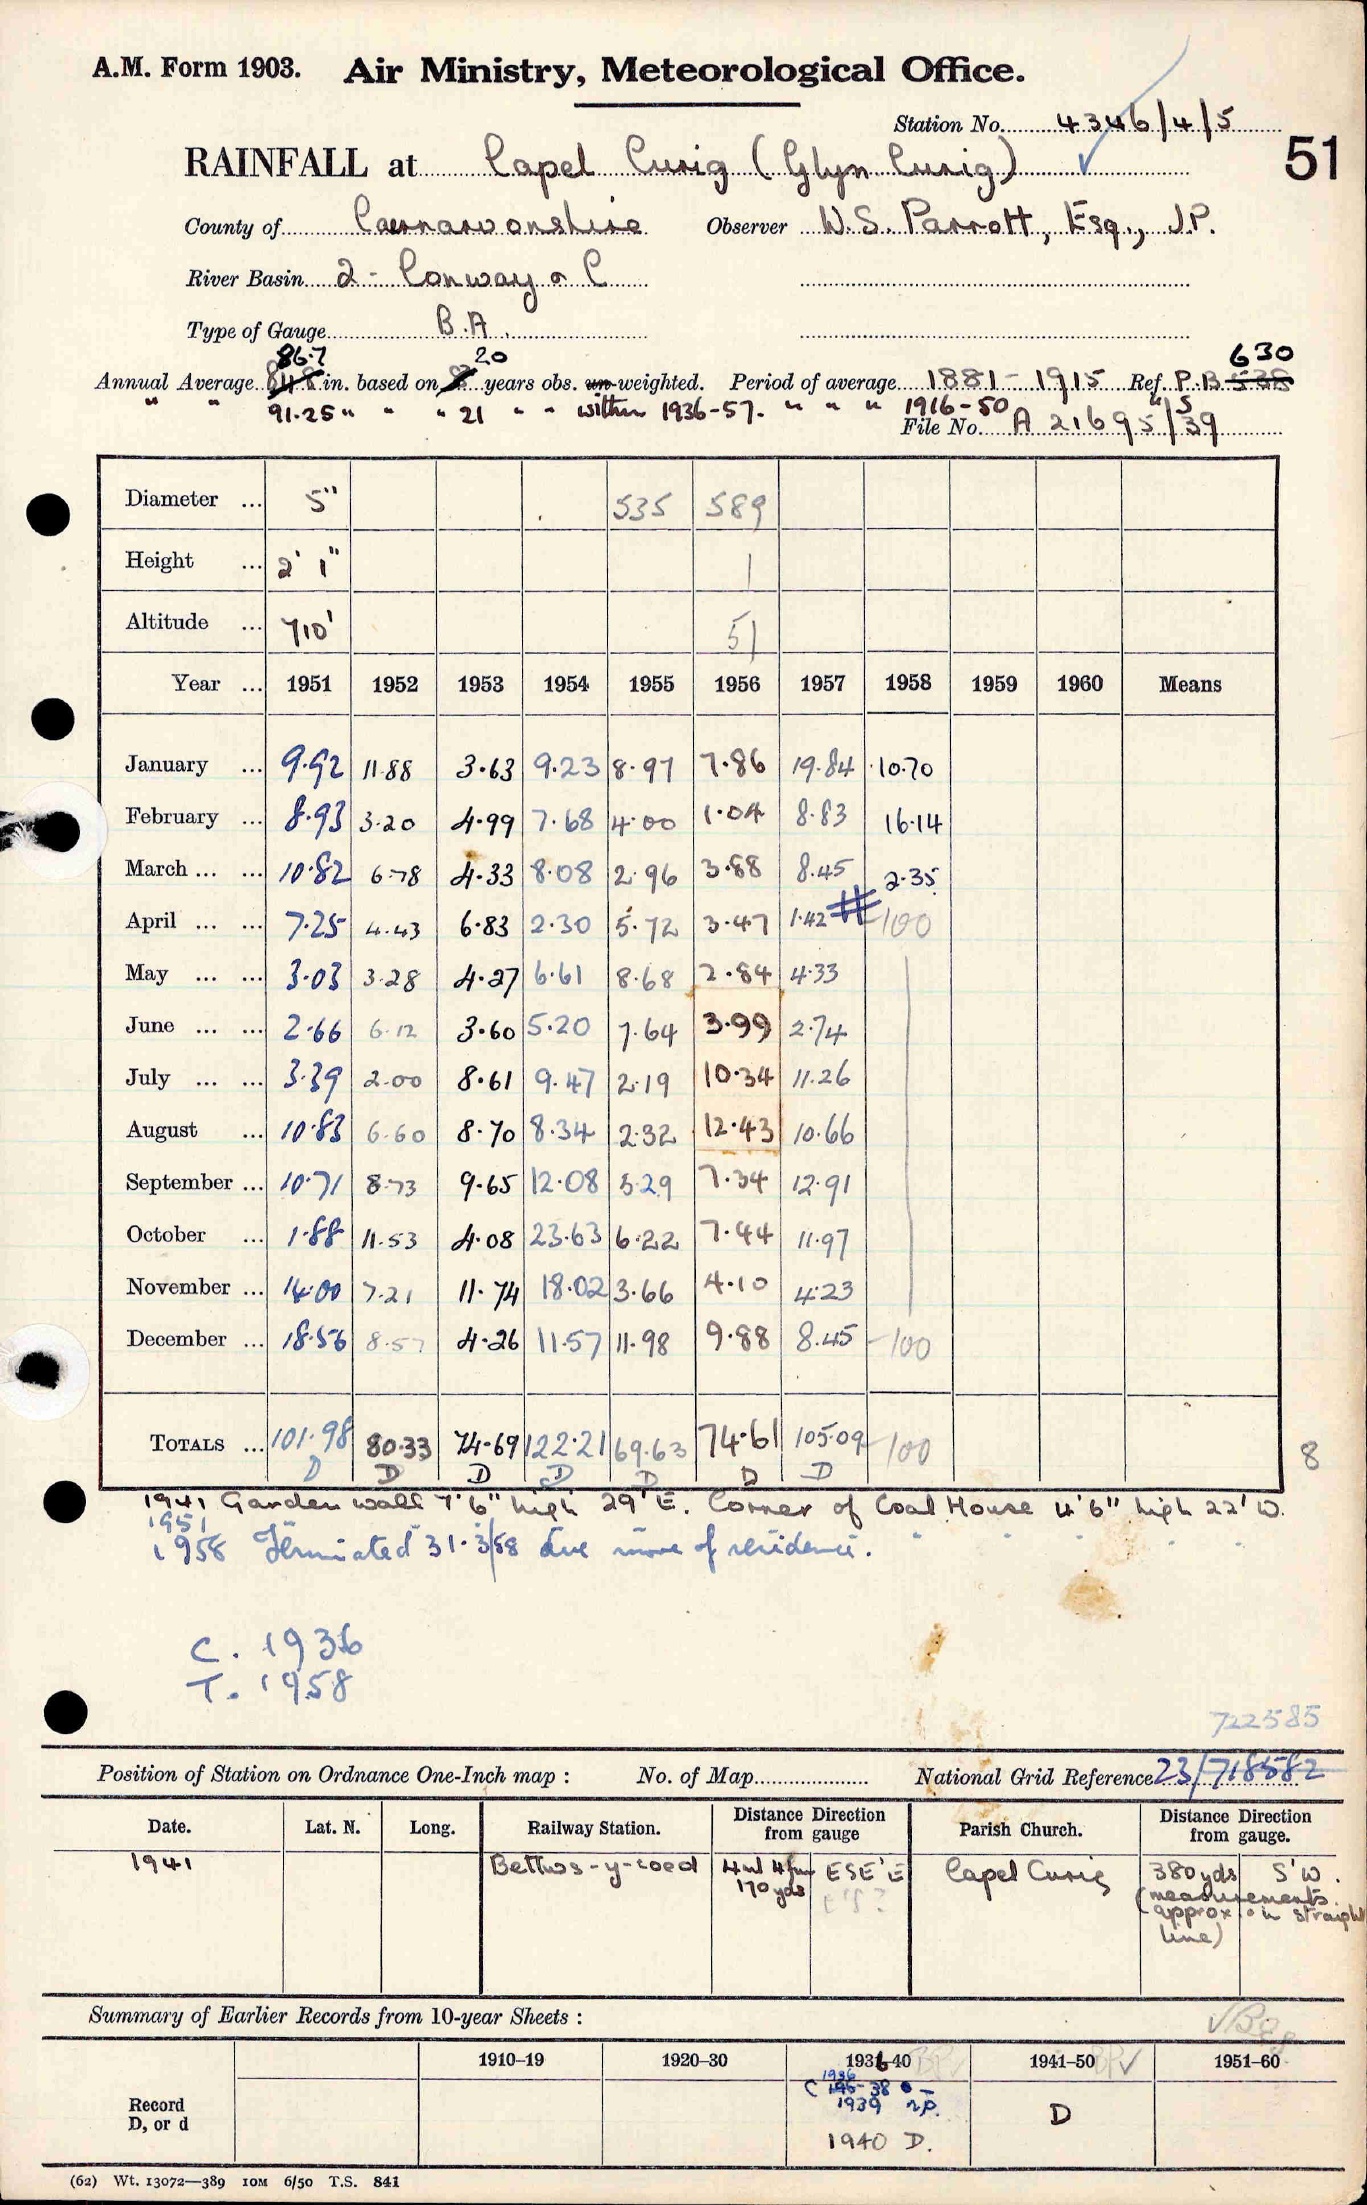 A.M. Form 1903. Air Ministry, Meteorological Office.
Station No. 4346/4/5
51
RAINFALL at Capel Curig (Glyn Curig)
County of Caernarvonshire Observer W.S. Parrott, Esq., J.P.
River Basin 2 - Conway & C
Type of Gauge B.A.
86.7 20 630
Annual Average 84.8 in. based on years obs. un-weighted. Period of average 1881-1915 Ref. P.B 538
" " 91.25 " " " 21 " " within 1936-57. " " " 1916-50 " 5
File No. A 21695/39
Diameter ... 5" 535 589
Height ... 2' 1" 1
Altitude ... 710' 51
Year ... 1951 1952 1953 1954 1955 1956 1957 1958 1959 1960 Means
January ... 9.92 11.88 3.63 9.23 8.97 7.86 19.84 10.70
February ... 8.93 3.20 4.99 7.68 4.00 1.04 8.83 16.14
March ... ... 10.82 6.78 4.33 8.08 2.96 3.88 8.45 2.35
April ... ... 7.25 4.43 6.83 2.30 5.72 3.47 1.42 # -100
May ... ... 3.03 3.28 4.27 6.61 8.68 2.84 4.33
June ... ... 2.66 6.12 3.60 5.20 7.64 3.99 2.74
July ... ... 3.39 2.00 8.61 9.47 2.19 10.34 11.26
August ... 10.83 6.60 8.70 8.34 2.32 12.43 10.66
September ... 10.71 8.73 9.65 12.08 5.29 7.34 12.91
October ... 1.88 11.53 4.08 23.63 6.22 7.44 11.97
November ... 14.00 7.21 11.74 18.02 3.66 4.10 4.23
December ... 18.56 8.57 4.26 11.57 11.98 9.88 8.45 -100
TOTALS ... 101.98 80.33 74.69 122.21 69.63 74.61 105.09 -100
8
D D D D D D D
1941 Garden wall 7'6" high 29' E. Corner of Coal House 4'6" high 22' W.
1951 " " " "
1958 Terminated 31.3/58 due move of residence.
C. 1936
T. 1958
722585
Position of Station on Ordnance One-Inch map : No. of Map National Grid Reference 23/718582
Date. Lat. N. Long. Railway Station. Distance Direction from gauge Parish Church. Distance Direction from gauge.
1941 Bettws-y-coed 4ml 4fur 170yds ESE'E Capel Curig 380yds S'W.
(measurements
approx. in straight
line)
Summary of Earlier Records from 10-year Sheets :
1910-19 1920-30 1936-40 1941-50 1951-60
Record
D, or d
C 1936-38
1939 n.p.
1940 D.
D
(62) Wt. 13072—389 10M 6/50 T.S. 841